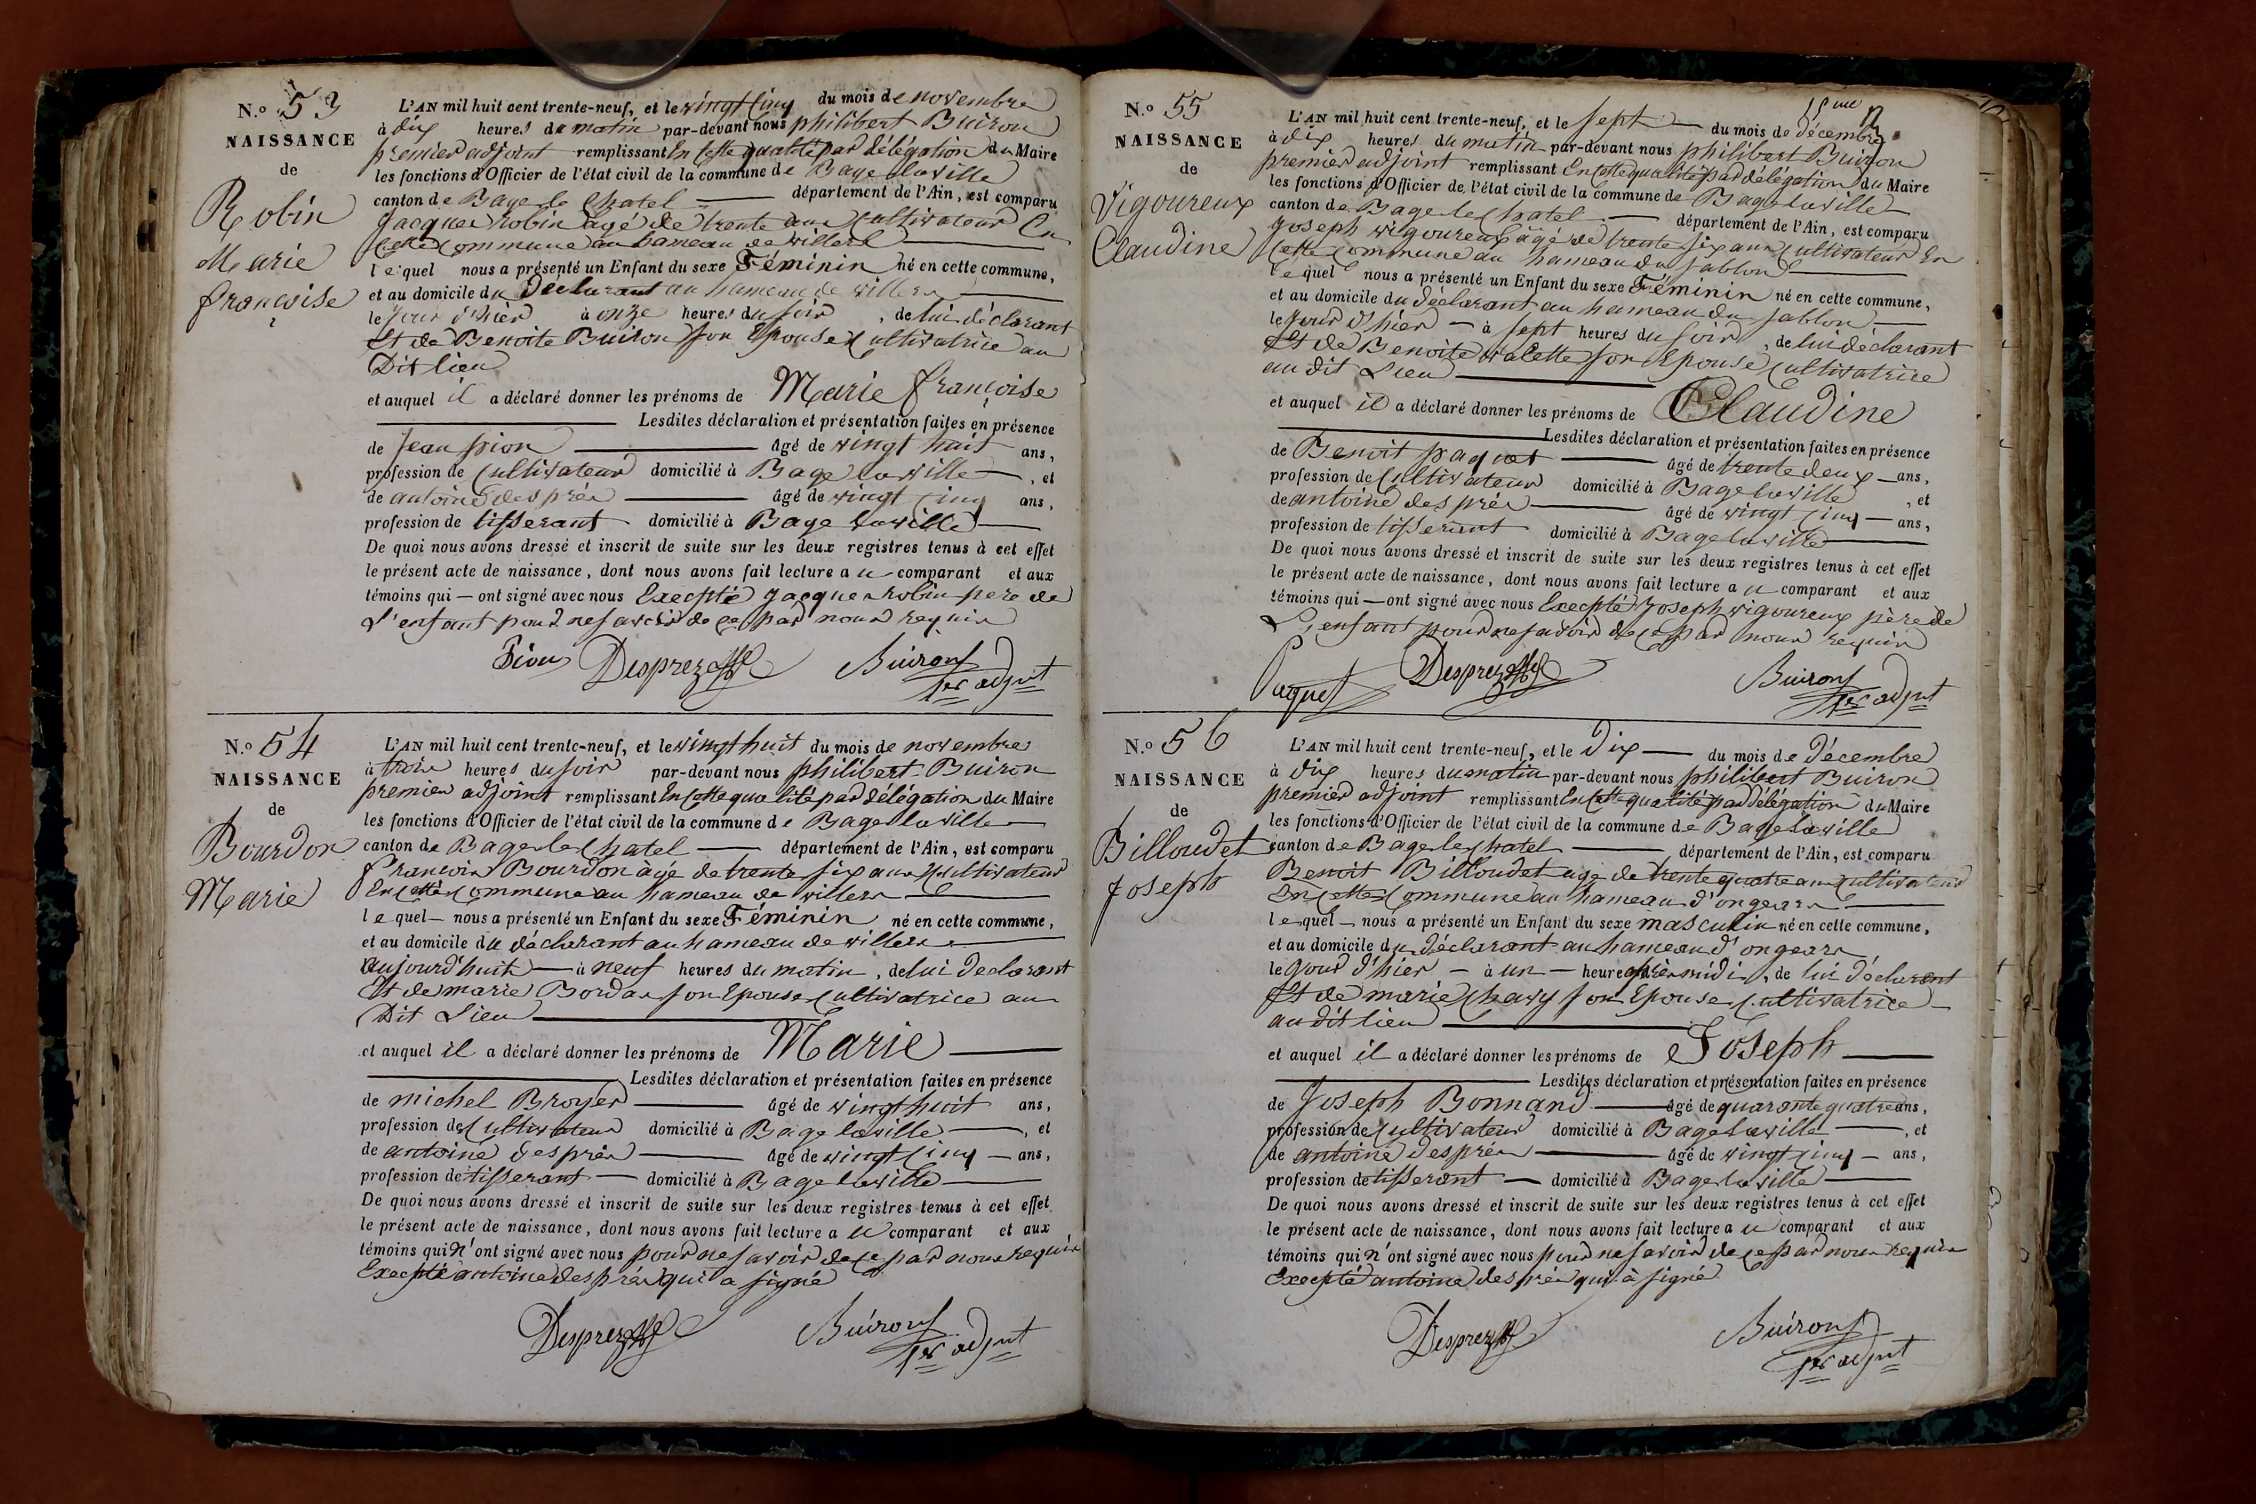 N.o 53
NAISSANCE
de
Robin
Marie
françoise
L'AN mil huit cent trente-neuf, et le vingt cinq du mois de novembre
à dix heures du matin par-devant nous philibert Buiron
premier adjoint remplissant En cette qualité par délégation du Maire
les fonctions d'Officier de l'état civil de la commune de Bage la ville
canton de Bage le Chatel département de l'Ain, est comparu
Jacques Robin agé de trente ans Cultivateur En
Cette Commune au hameau de villers
lequel nous a présenté un Enfant du sexe Féminin né en cette commune,
et au domicile du Declarant au hameau de villers
le jour d'hier à onze heures du soir, de lui déclarant
Et de Benoite Buiron son Epouse Cultivatrice au
Dit lieu
et auquel il a déclaré donner les prénoms de Marie françoise
Lesdites déclaration et présentation faites en présence
de Jean pion âgé de vingt huit ans,
profession de Cultivateur domicilié à Bage la ville, et
de antoine després âgé de vingt Cinq ans,
profession de tisserant domicilié à Bage la ville
De quoi nous avons dressé et inscrit de suite sur les deux registres tenus à cet effet
le présent acte de naissance, dont nous avons fait lecture au comparant et aux
témoins qui ont signé avec nous Excepté Jacques Robin pere de
L'enfant pour ne savoir de ce par nous requis
Pion Desprez Buiron
1er adjnt
N.o 54
NAISSANCE
de
Bourdon
Marie
L'AN mil huit cent trente-neuf, et le vingt huit du mois de novembre
à trois heures du soir par-devant nous philibert Buiron
premier adjoint remplissant En cette qualité par délégation du Maire
les fonctions d'Officier de l'état civil de la commune de Bage la ville
canton de Bage le Chatel département de l'Ain, est comparu
François Bourdon âgé de trente six ans Cultivateur
En cette Commune au hameau de villers
lequel nous a présenté un Enfant du sexe Féminin né en cette commune,
et au domicile du déclarant au hameau de villers
aujourd'huit à neuf heures du matin, de lui Declarant
Et de marie Bordas son Epouse Cultivatrice au
Dit Lieu
et auquel il a déclaré donner les prénoms de Marie
Lesdites déclaration et présentation faites en présence
de michel Broyer âgé de vingt huit ans,
profession de Cultivateur domicilié à Bage la ville, et
de antoine després âgé de vingt Cinq ans,
profession de tisserant domicilié à Bage la ville
De quoi nous avons dressé et inscrit de suite sur les deux registres tenus à cet effet
le présent acte de naissance, dont nous avons fait lecture au comparant et aux
témoins qui n'ont signé avec nous pour ne savoir de ce par nous requis
Excepté antoine després qui a signé
Desprez Buiron
1er adjnt
N.o 55
NAISSANCE
de
Vigoureux
Claudine
L'AN mil huit cent trente-neuf, et le sept du mois de décembre
à dix heures du matin par-devant nous philibert Buiron
premier adjoint remplissant En cette qualité par délégation du Maire
les fonctions d'Officier de l'état civil de la commune de Bage la ville
canton de Bage le Chatel département de l'Ain, est comparu
Joseph vigoureux âgé de trente six ans Cultivateur En
Cette Commune au hameau du sablon
lequel nous a présenté un Enfant du sexe Féminin né en cette commune,
et au domicile du déclarant au hameau du sablon
le jour d'hier à sept heures du soir, de lui déclarant
Et de Benoite valette son Epouse Cultivatrice
au dit Lieu
et auquel il a déclaré donner les prénoms de Claudine
Lesdites déclaration et présentation faites en présence
de Benoit paquet âgé de trente deux ans,
profession de Cultivateur domicilié à Bage la ville, et
de antoine després âgé de vingt Cinq ans,
profession de tisserant domicilié à Bage la ville
De quoi nous avons dressé et inscrit de suite sur les deux registres tenus à cet effet
le présent acte de naissance, dont nous avons fait lecture au comparant et aux
témoins qui ont signé avec nous Excepté Joseph vigoureux père de
L'enfant pour ne savoir de ce par nous requis
Paquet Desprez Buiron
1er adjnt
N.o 56
NAISSANCE
de
Billoudet
Joseph
L'AN mil huit cent trente-neuf, et le Dix du mois de Décembre
à dix heures du matin par-devant nous philibert Buiron
premier adjoint remplissant En cette qualité par délégation du Maire
les fonctions d'Officier de l'état civil de la commune de Bage la ville
canton de Bage le Chatel département de l'Ain, est comparu
Benoit Billoudet age de trente quatre ans Cultivateur
En Cette Commune au hameau d'ongears
lequel nous a présenté un Enfant du sexe masculin né en cette commune,
et au domicile du déclarant au hameau d'ongears
le jour d'hier à un heure après midi, de lui déclarant
Et de marie Chavy son Epouse Cultivatrice
au dit lieu
et auquel il a déclaré donner les prénoms de Joseph
Lesdites déclaration et présentation faites en présence
de Joseph Bonnand âgé de quarante quatre ans,
profession de Cultivateur domicilié à Bage la ville, et
de antoine després âgé de vingt Cinq ans,
profession de tisserant domicilié à Bage la ville
De quoi nous avons dressé et inscrit de suite sur les deux registres tenus à cet effet
le présent acte de naissance, dont nous avons fait lecture au comparant et aux
témoins qui n'ont signé avec nous pour ne savoir de ce par nous requis
Excepté antoine després qui à signé
Desprez Buiron
1er adjnt